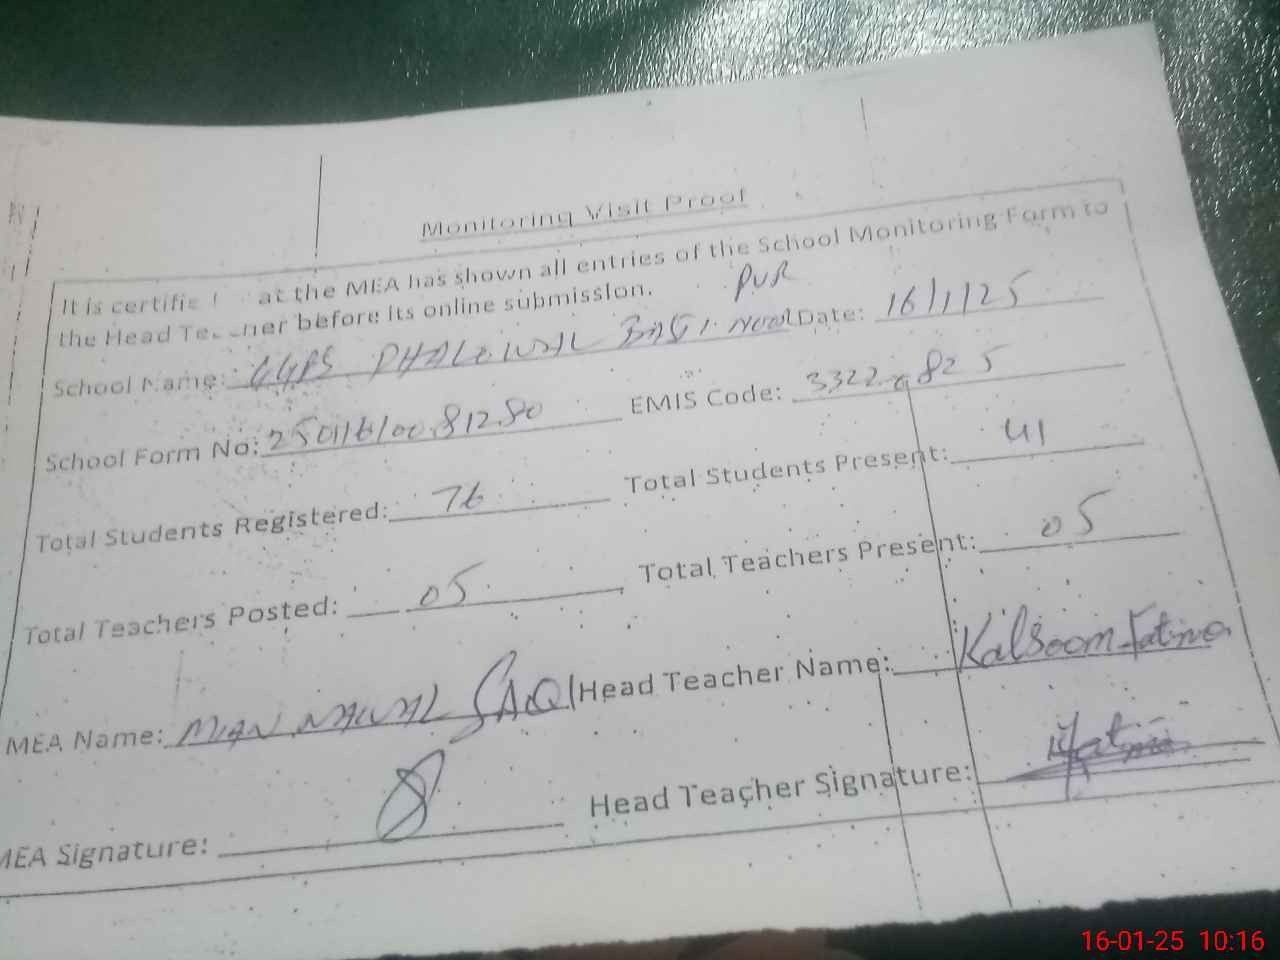 Monitoring Visit Proof
It is certifie at the MEA has shown all entries of the School Monitoring Form to
the Head Teacher before its online submission.
PUR
School Name: GGPS PHALEWAL BASTI NOOR Date: 16/1/25
School Form No: EMIS Code:
Total Students Registered: 76 Total Students Present: 41
Total Teachers Posted: 05 Total Teachers Present: 05
MEA Name: MIAN NAWAL SAQI Head Teacher Name: Kalsoom Fatima
MEA Signature: Head Teacher Signature:
16-01-25 10:16